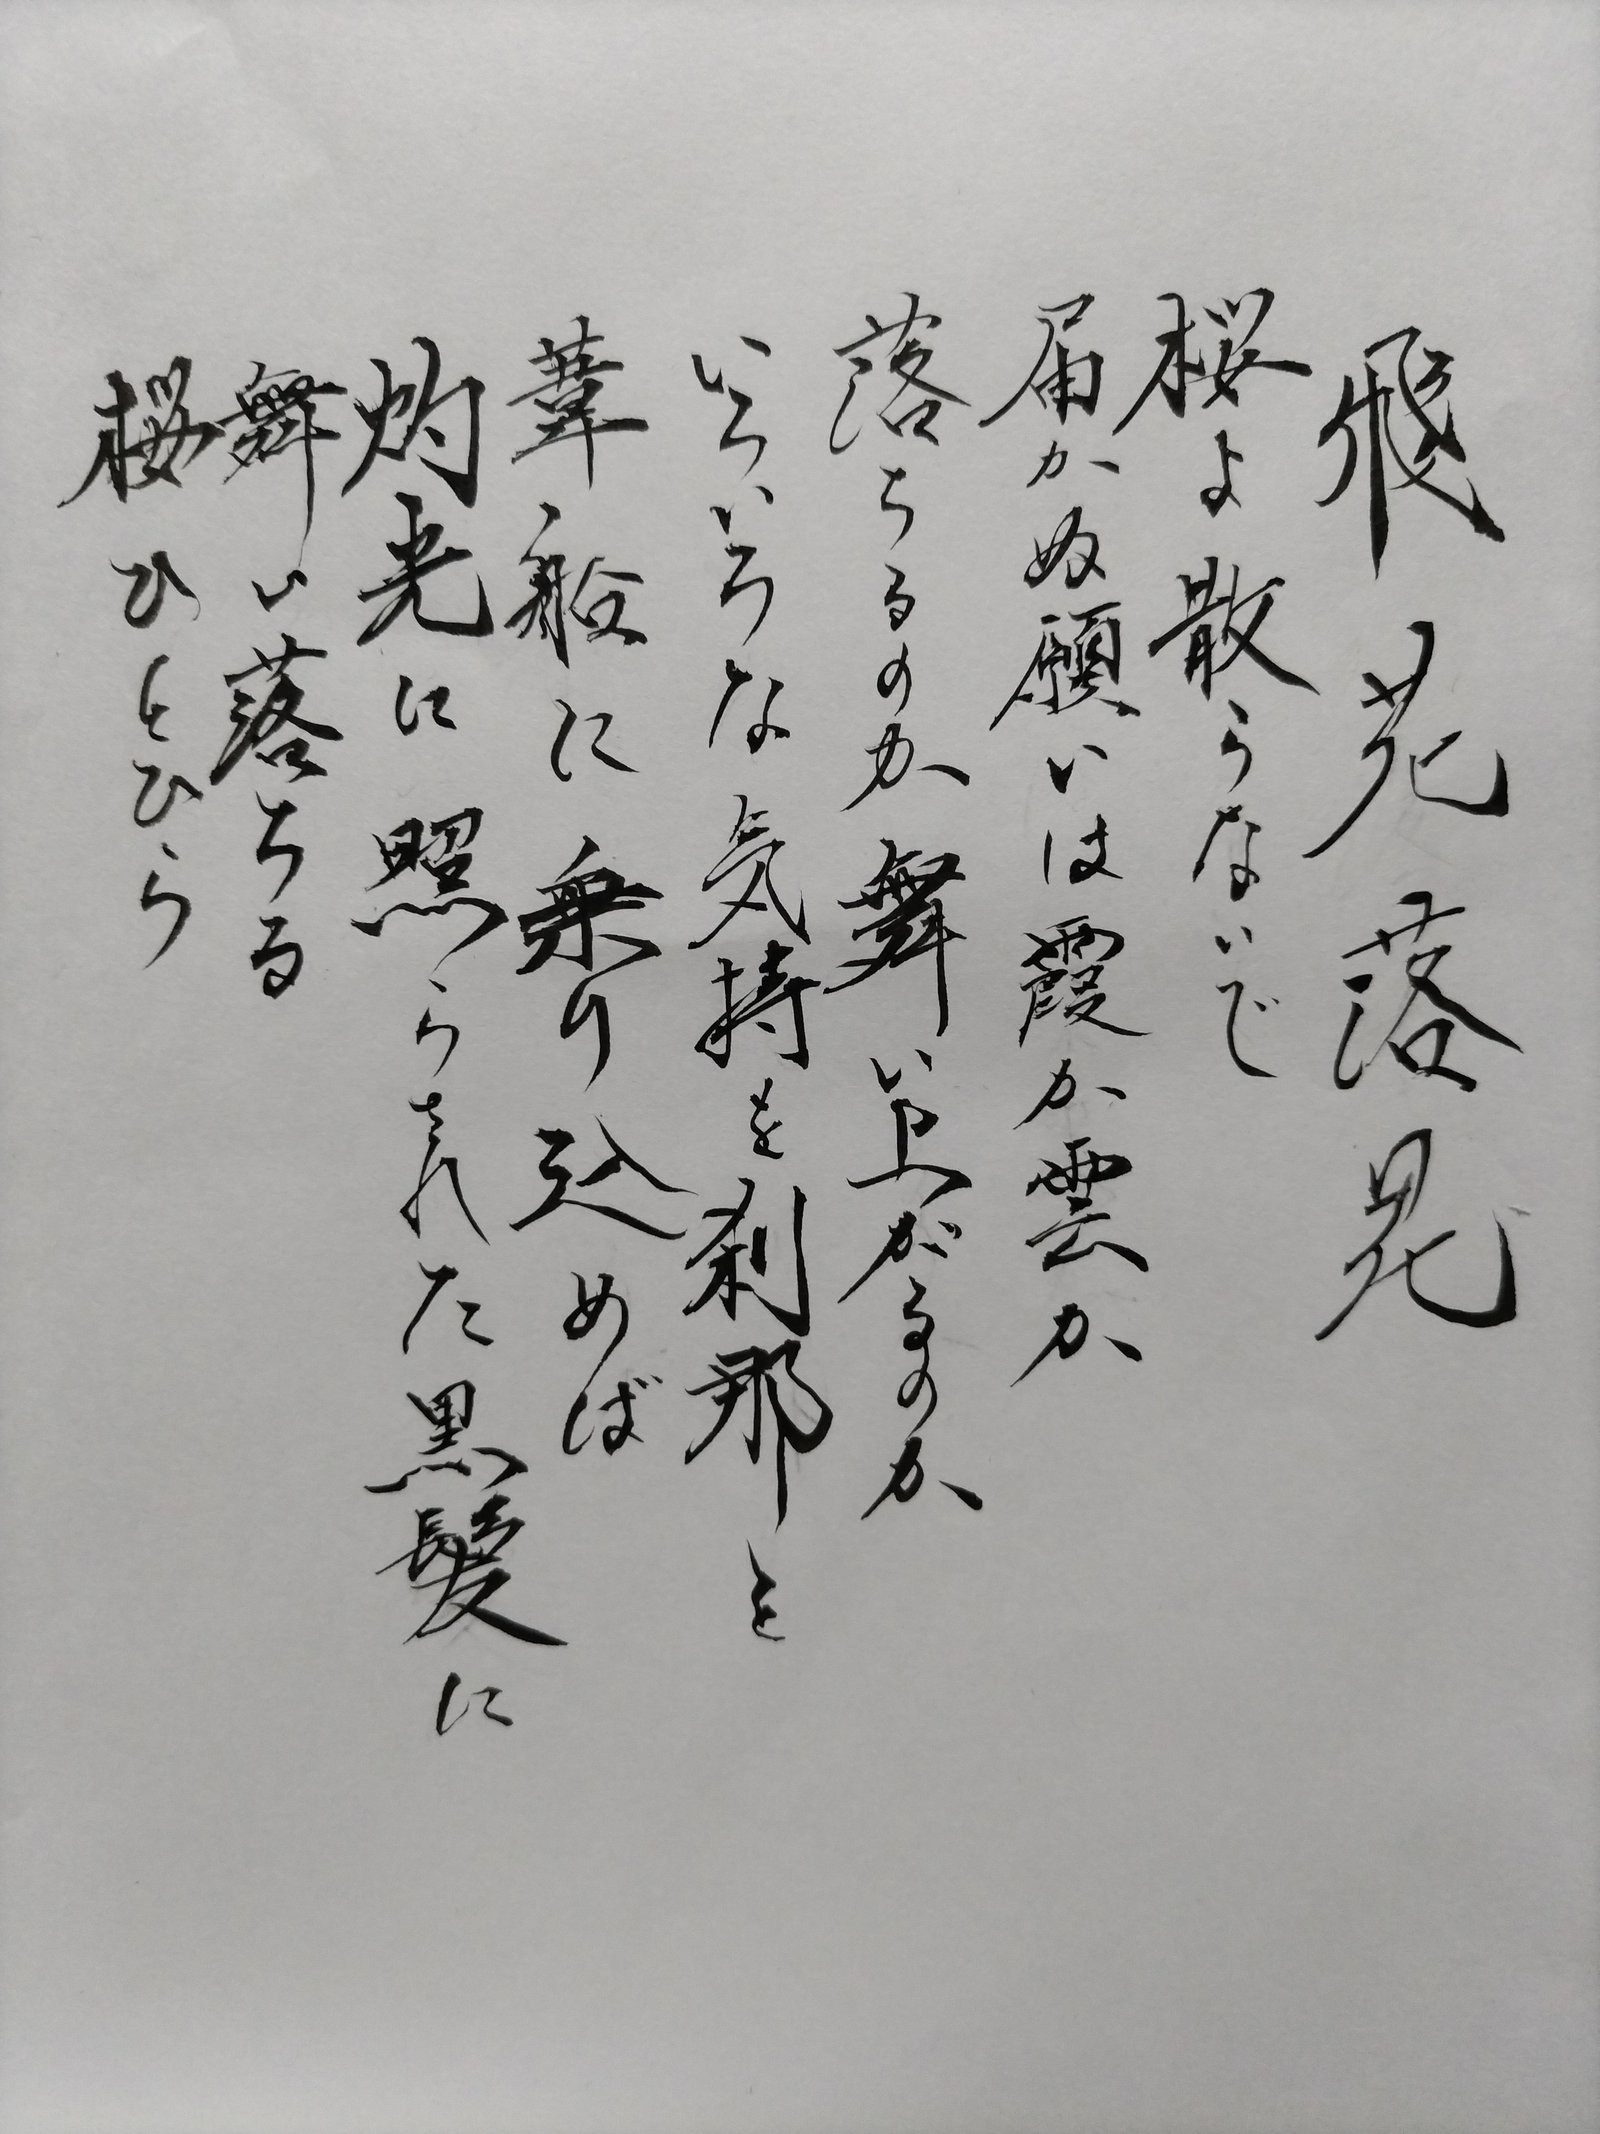 飛花落花
桜よ散らないで
届かぬ願いは霞か雲か
落ちるのか舞い上がるのか
いろいろな気持を刹那と
葦船に乗り込めば
灼光に照らされた黒髪に
舞い落ちる
桜ひとひら